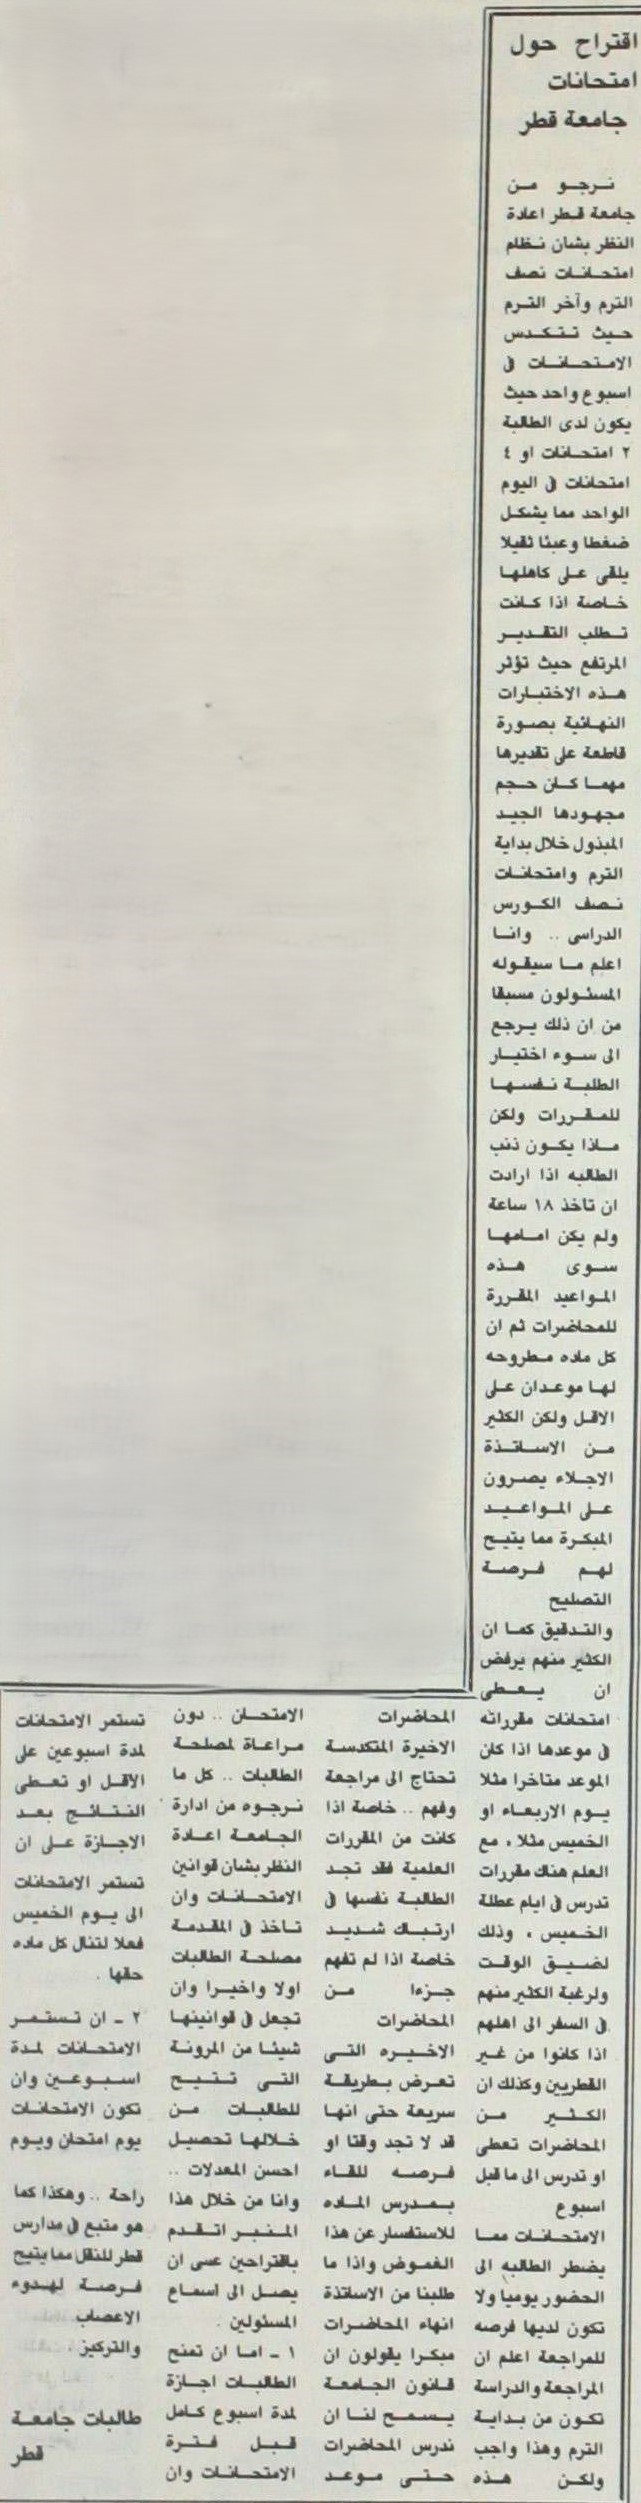 اقتراح حول
امتحانات
جامعة قطر
نرجو من
جامعة قطر اعادة
النظر بشان نظام
امتحانات نصف
الترم وآخر الترم
حيث تتكدس
الامتحانات في
اسبوع واحد حيث
يكون لدى الطالبة
٢ امتحانات او ٤
امتحانات في اليوم
الواحد مما يشكل
ضغطا وعبئا ثقيلا
يلقى على كاهلها
خاصة اذا كانت
تطلب التقدير
المرتفع حيث تؤثر
هذه الاختبارات
النهائية بصورة
قاطعة على تقديرها
مهما كان حجم
مجهودها الجيد
المبذول خلال بداية
الترم وامتحانات
نصف الكورس
الدراسى .. وانا
اعلم ما سيقوله
المسئولون مسبقا
من ان ذلك يرجع
الى سوء اختيار
الطلبة نفسها
للمقررات ولكن
ماذا يكون ذنب
الطالبه اذا ارادت
ان تاخذ ١٨ ساعة
ولم يكن امامها
سوى هذه
المواعيد المقررة
للمحاضرات ثم ان
كل ماده مطروحه
لها موعدان على
الاقل ولكن الكثير
من الاساتذة
الاجلاء يصرون
على المواعيد
المبكرة مما يتيح
لهم فرصة
التصليح
والتدقيق كما ان
الكثير منهم يرفض
ان يعطى
امتحانات مقرراته
في موعدها اذا كان
الموعد متاخرا مثلا
يوم الاربعاء او
الخميس مثلا ، مع
العلم هناك مقررات
تدرس في ايام عطلة
الخميس ، وذلك
لضيق الوقت
ولرغبة الكثير منهم
في السفر الى اهلهم
اذا كانوا من غير
القطريين وكذلك ان
الكثير من
المحاضرات تعطى
او تدرس الى ما قبل
اسبوع
الامتحانات مما
يضطر الطالبه الى
الحضور يوميا ولا
تكون لديها فرصه
للمراجعة اعلم ان
المراجعة والدراسة
تكون من بداية
الترم وهذا واجب
ولكن هذه
المحاضرات
الاخيرة المتكدسة
تحتاج الى مراجعة
وفهم .. خاصة اذا
كانت من المقررات
العلمية فقد تجد
الطالبة نفسها في
ارتباك شديد
خاصة اذا لم تفهم
جزءا من
المحاضرات
الاخيره التى
تعرض بطريقة
سريعة حتى انها
قد لا تجد وقتا او
فرصه للقاء
بمدرس الماده
للاستفسار عن هذا
الغموض واذا ما
طلبنا من الاساتذة
انهاء المحاضرات
مبكرا يقولون ان
قانون الجامعة
يسمح لنا ان
ندرس المحاضرات
حتى موعد
الامتحان .. دون
مراعاة لمصلحة
الطالبات .. كل ما
نرجوه من ادارة
الجامعة اعادة
النظر بشان قوانين
الامتحانات وان
تاخذ في المقدمة
مصلحة الطالبات
اولا واخيرا وان
تجعل في قوانينها
شيئا من المرونة
التى تتيح
للطالبات من
خلالها تحصيل
احسن المعدلات ..
وانا من خلال هذا
المنبر اتقدم
باقتراحين عسى ان
يصل الى اسماع
المسئولين .
١ ـ اما ان تمنح
الطالبات اجازة
لمدة اسبوع كامل
قبل فترة
الامتحانات وان
تستمر الامتحانات
لمدة اسبوعين على
الاقل او تعطى
النتائج بعد
الاجازة على ان
تستمر الامتحانات
الى يوم الخميس
فعلا لتنال كل ماده
حقها .
٢ ـ ان تستمر
الامتحانات لمدة
اسبوعين وان
تكون الامتحانات
يوم امتحان ويوم
راحة .. وهكذا كما
هو متبع في مدارس
قطر للنقل مما يتيح
فرصة لهدوء
الاعصاب
والتركيز .
طالبات جامعة
قطر